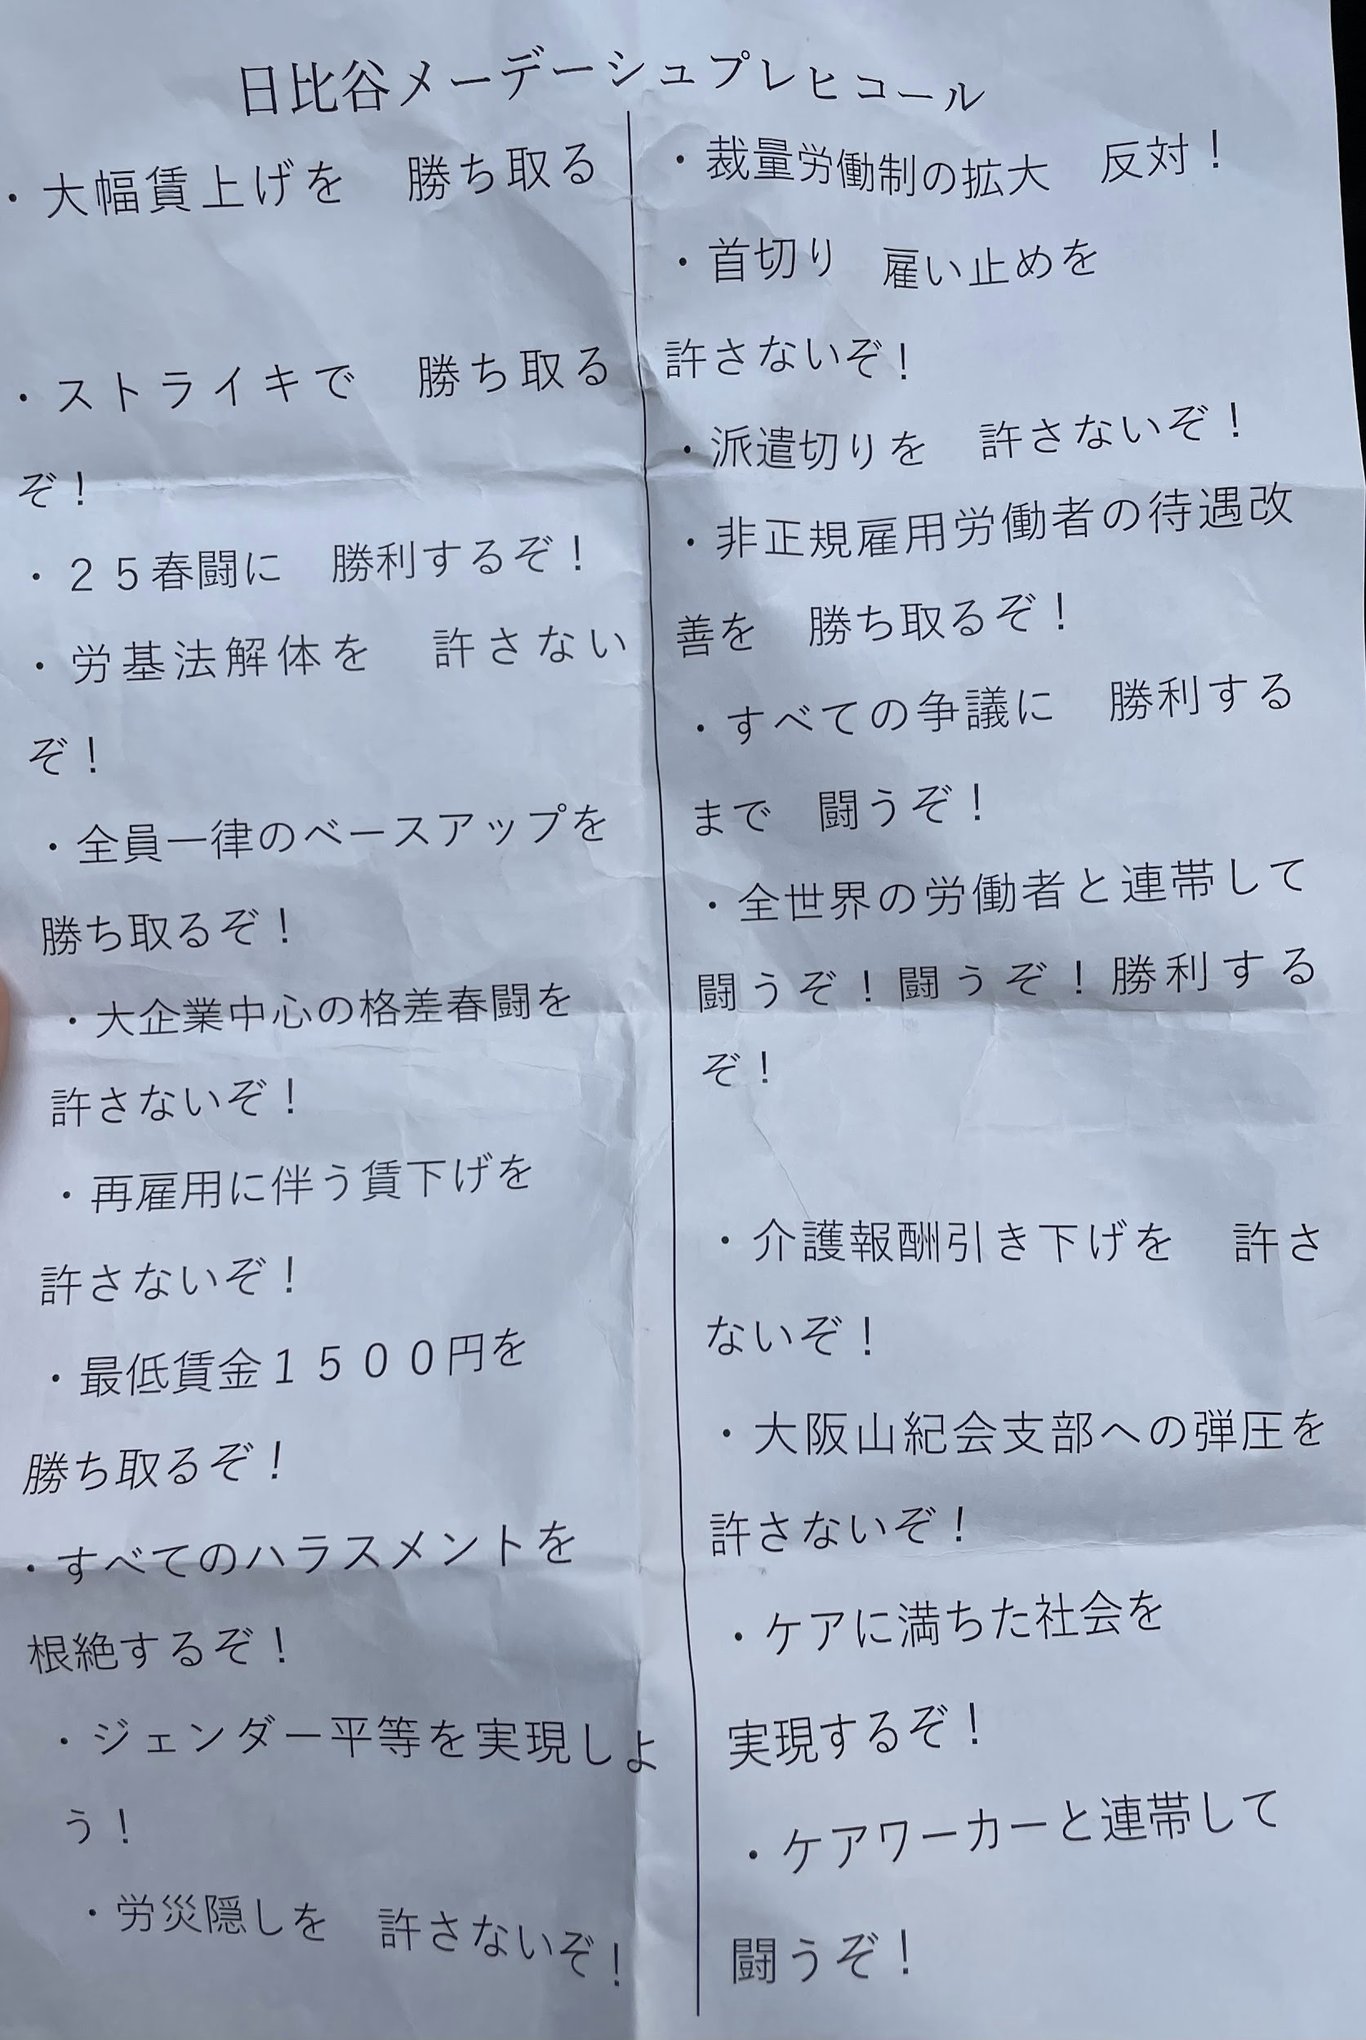 日比谷メーデーシュプレヒコール
・大幅賃上げを　勝ち取る
・ストライキで　勝ち取る
ぞ！
・２５春闘に　勝利するぞ！
・労基法解体を　許さない
ぞ！
・全員一律のベースアップを
勝ち取るぞ！
・大企業中心の格差春闘を
許さないぞ！
・再雇用に伴う賃下げを
許さないぞ！
・最低賃金１５００円を
勝ち取るぞ！
・すべてのハラスメントを
根絶するぞ！
・ジェンダー平等を実現しよ
う！
・労災隠しを　許さないぞ！
・裁量労働制の拡大　反対！
・首切り　雇い止めを
許さないぞ！
・派遣切りを　許さないぞ！
・非正規雇用労働者の待遇改
善を　勝ち取るぞ！
・すべての争議に　勝利する
まで　闘うぞ！
・全世界の労働者と連帯して
闘うぞ！闘うぞ！勝利する
ぞ！
・介護報酬引き下げを　許さ
ないぞ！
・大阪山紀会支部への弾圧を
許さないぞ！
・ケアに満ちた社会を
実現するぞ！
・ケアワーカーと連帯して
闘うぞ！